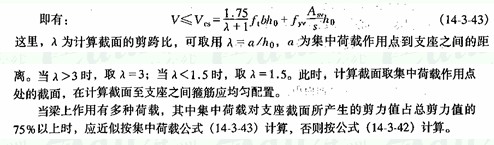 即有： V≤Vcs=1.75/(λ+1) ftbh0+fyv Asv/s h0 (14-3-43)
这里，λ为计算截面的剪跨比，可取用λ=a/h0，a为集中荷载作用点到支座之间的距
离。当λ>3时，取λ=3；当λ<1.5时，取λ=1.5。此时，计算截面取集中荷载作用点
处的截面，在计算截面至支座之间箍筋应均匀配置。
当梁上作用有多种荷载，其中集中荷载对支座截面所产生的剪力值占总剪力值的
75%以上时，应近似按集中荷载公式（14-3-43）计算，否则按公式（14-3-42）计算。